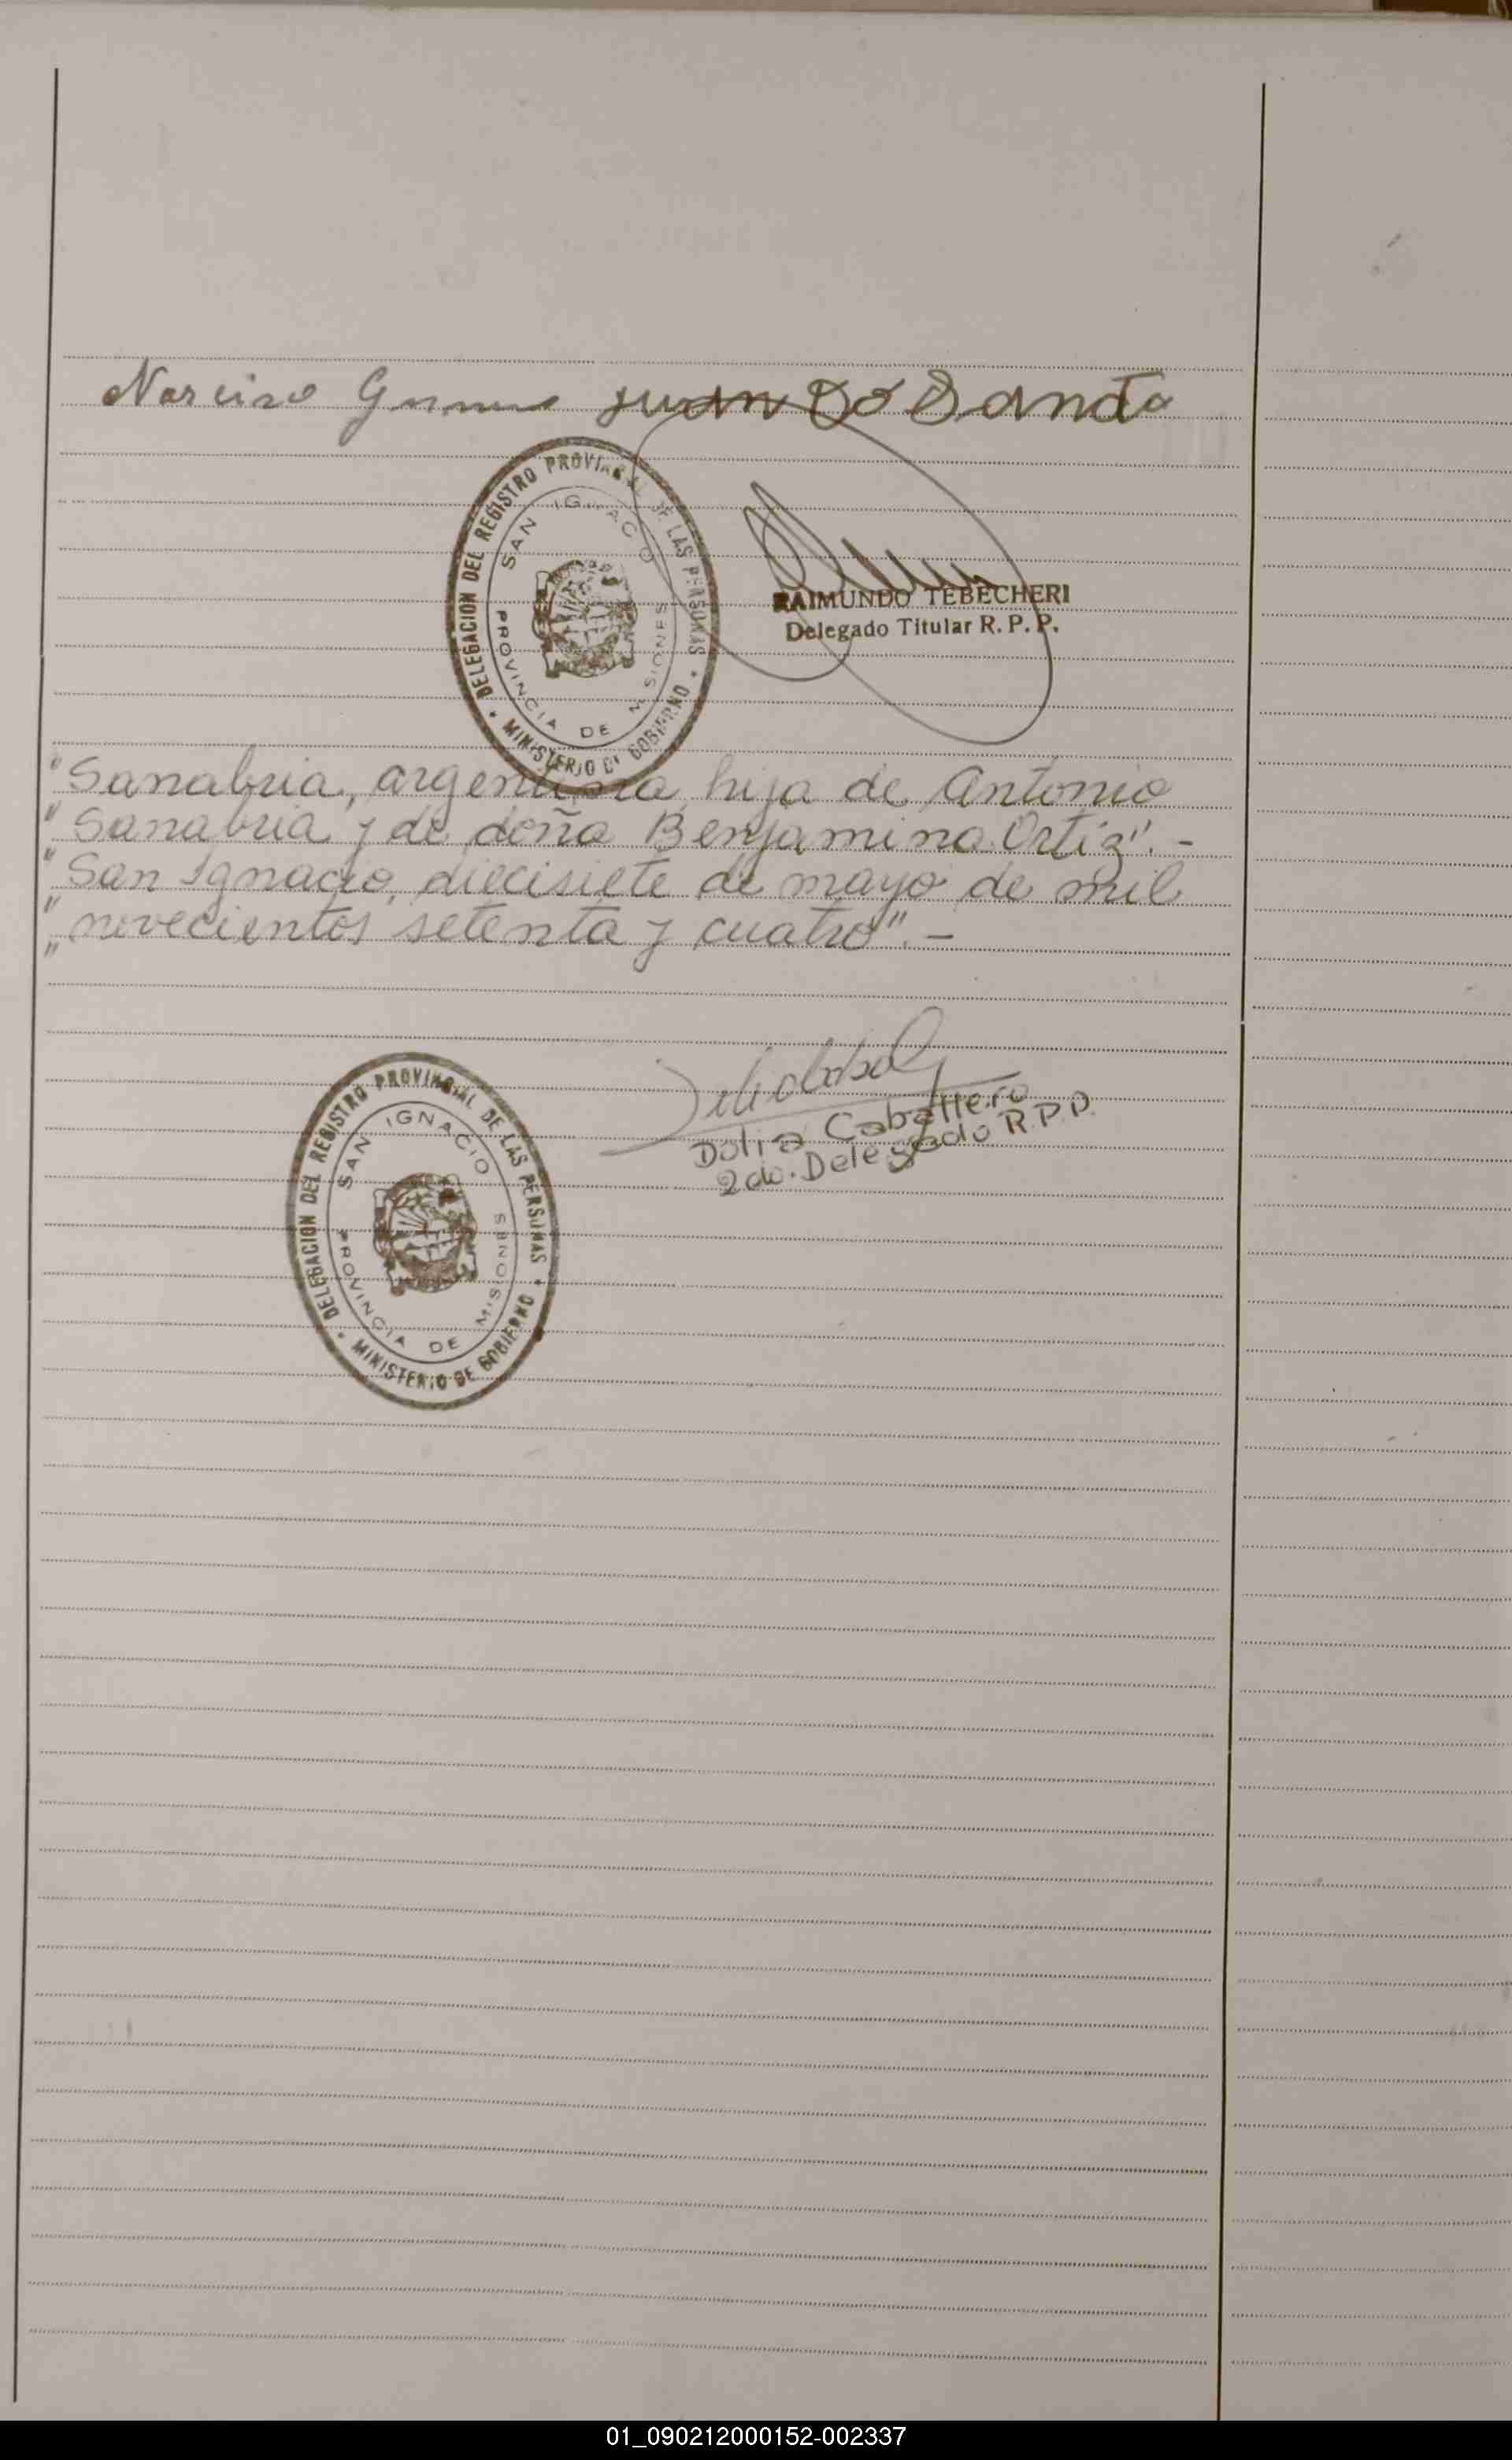 Narciso
DELEGACION DEL REGISTRO PROVINCIAL DE LAS PERSONAS
SAN IGNACIO
PROVINCIA DE MISIONES
* MINISTERIO DE GOBIERNO *
RAIMUNDO TEBECHERI
Delegado Titular R. P. P.
"Sanabria, argentina, hija de Antonio
"Sanabria y de doña Benjamina Ortíz". -
"San Ignacio, diecisiete de mayo de mil
"novecientos setenta y cuatro". -
"
DELEGACION DEL REGISTRO PROVINCIAL DE LAS PERSONAS
SAN IGNACIO
PROVINCIA DE MISIONES
* MINISTERIO DE GOBIERNO *
Caballero
2do. Delegado R.P.P.
01_090212000152-002337